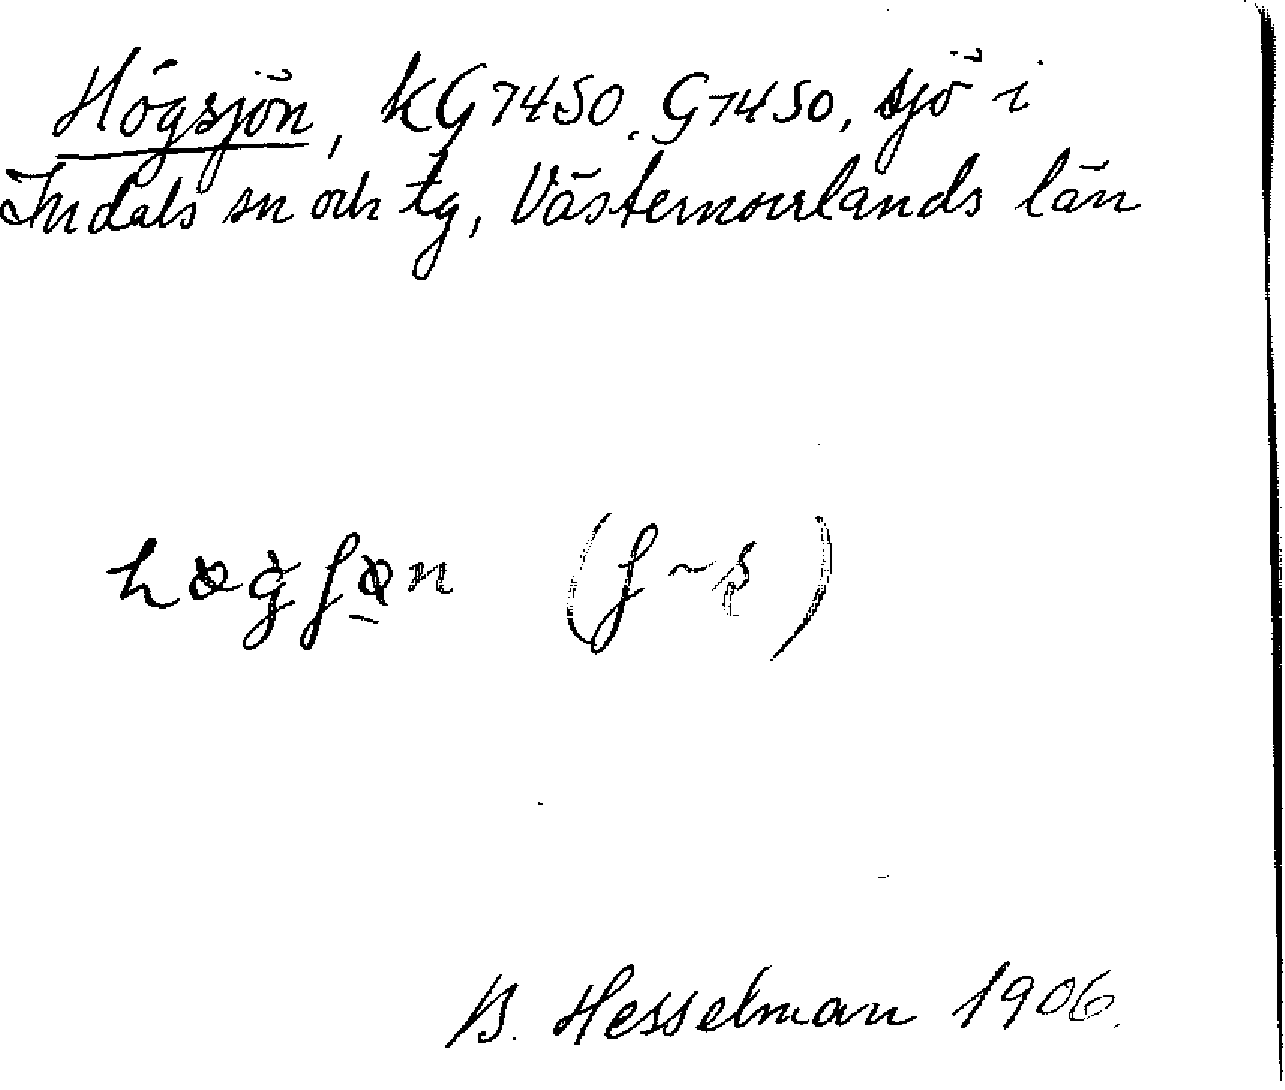 Högsjön, KG7450. G7450, sjö i
Indals sn och tg, Västernorrlands län
B. Hesselman 1906.